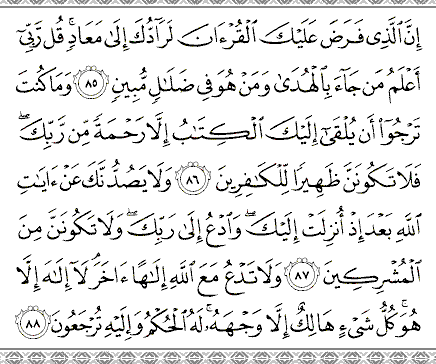 إِنَّ ٱلَّذِى فَرَضَ عَلَيْكَ ٱلْقُرْءَانَ لَرَآدُّكَ إِلَىٰ مَعَادٍۢ ۚ قُل رَّبِّىٓ
أَعْلَمُ مَن جَآءَ بِٱلْهُدَىٰ وَمَنْ هُوَ فِى ضَلَٰلٍۢ مُّبِينٍۢ ٨٥ وَمَا كُنتَ
تَرْجُوٓا۟ أَن يُلْقَىٰٓ إِلَيْكَ ٱلْكِتَٰبُ إِلَّا رَحْمَةًۭ مِّن رَّبِّكَ ۖ
فَلَا تَكُونَنَّ ظَهِيرًۭا لِّلْكَٰفِرِينَ ٨٦ وَلَا يَصُدُّنَّكَ عَنْ ءَايَٰتِ
ٱللَّهِ بَعْدَ إِذْ أُنزِلَتْ إِلَيْكَ ۖ وَٱدْعُ إِلَىٰ رَبِّكَ ۖ وَلَا تَكُونَنَّ مِنَ
ٱلْمُشْرِكِينَ ٨٧ وَلَا تَدْعُ مَعَ ٱللَّهِ إِلَٰهًا ءَاخَرَ ۘ لَآ إِلَٰهَ إِلَّا
هُوَ ۚ كُلُّ شَىْءٍ هَالِكٌ إِلَّا وَجْهَهُۥ ۚ لَهُ ٱلْحُكْمُ وَإِلَيْهِ تُرْجَعُونَ ٨٨